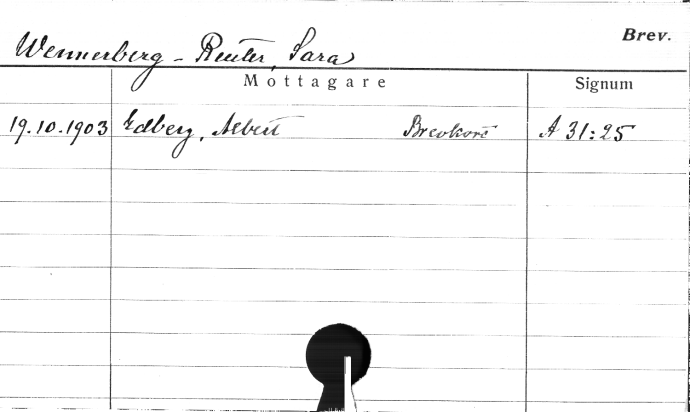 Brev.
Wennerberg - Reuter, Sara
Mottagare Signum
19.10.1903 Edberg, Albert Brevkort A 31:25